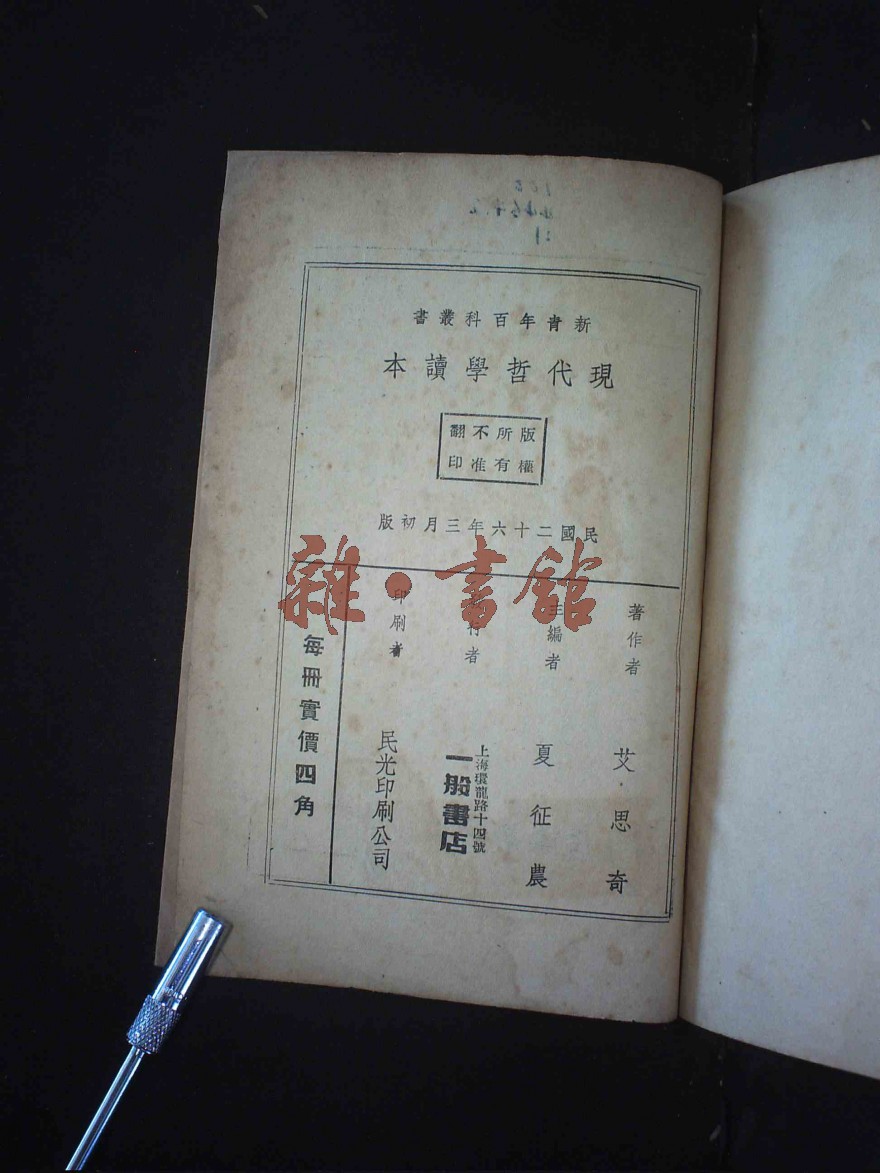 新青年百科叢書
現代哲學讀本
版權所有不准翻印
民國二十六年三月初版
著作者 艾思奇
主編者 夏征農
行者 上海環龍路十四號
一般書店
印刷者 民光印刷公司
每冊實價四角
雜·書館